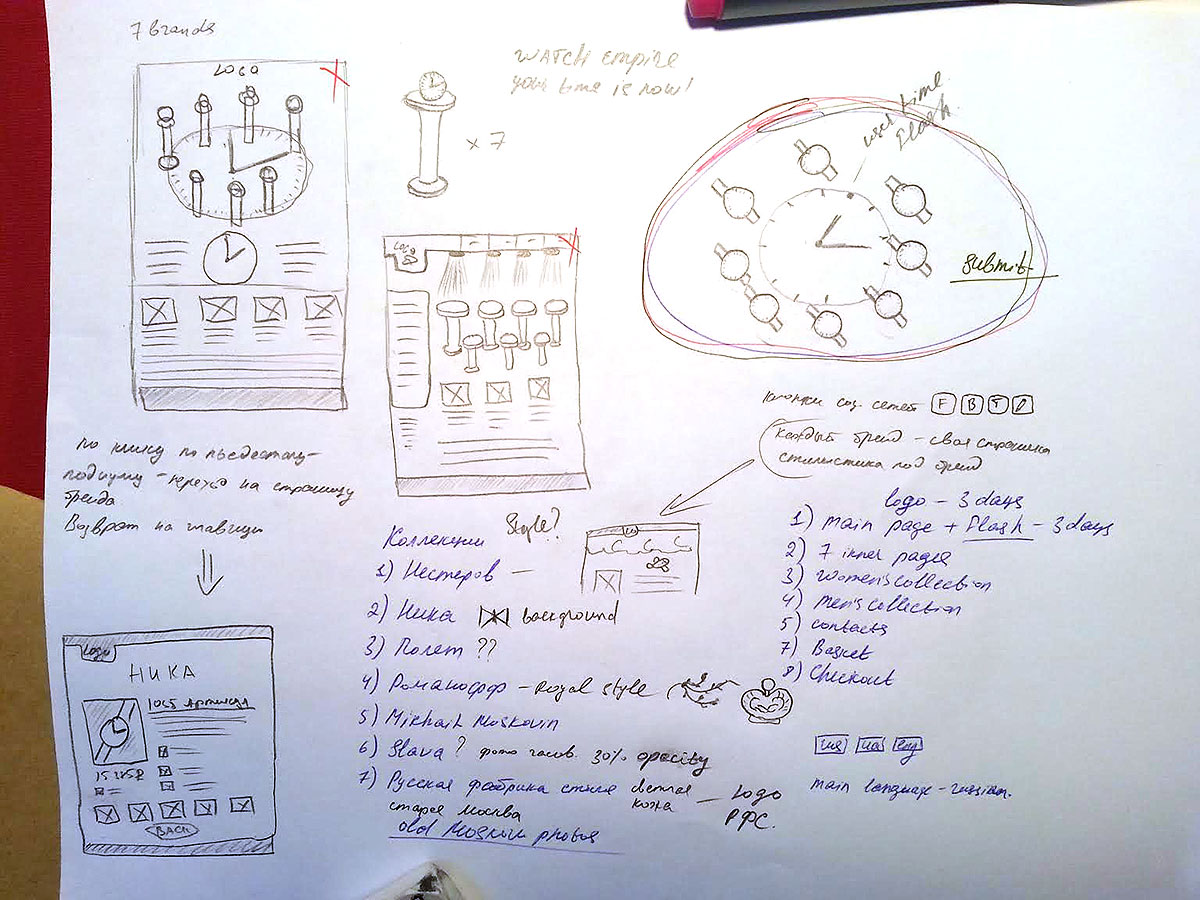 7 Brands
LOGO
WATCH Empire
your time is now!
x 7
user time
Flash
Logo
submit
Кнопки соц. сетей F B T
Каждый бренд - своя страница
стилистика под бренд
По клику по пьедесталу-
подиуму - переход на страницу
бренда
Возврат на главную
logo - 3 days
1) main page + Flash - 3 days
2) 7 inner pages
3) women's collection
4) men's collection
5) contacts
7) Basket
8) Checkout
main language - russian.
Style?
Коллекции
1) Нестеров -
2) Ника background
3) Полет ??
4) Романофф - Royal style
5) Mikhail Moskovin
6) Slava ? фото часов. 30% opacity
7) Русская фабрика стиля светлая кожа - Logo РФС.
старая Москва
old Moskow photos
Logo
НИКА
BACK